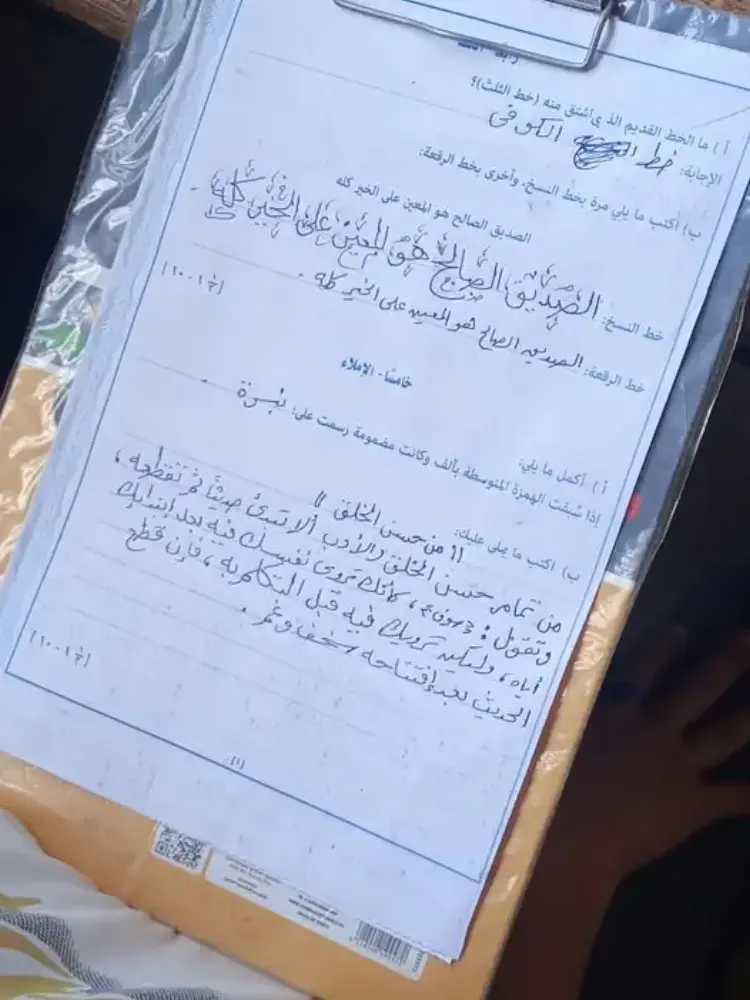 أ ) ما الخط القديم الذي اشتق منه (خط الثلث)؟
الإجابة: خط الكوفي
ب) اكتب ما يلي مرة بخط النسخ، وأخرى بخط الرقعة:
الصديق الصالح هو المعين على الخير كله
خط النسخ: الصديق الصالح هو المعين على الخير كله
خط الرقعة: الصديق الصالح هو المعين على الخير كله .
خامسًا - الإملاء
أ ) أكمل ما يلي:
إذا سُبقت الهمزة المتوسطة بألف وكانت مضمومة رسمت على: نبرة
ب) اكتب ما يملى عليك:
"من حسن الخلق"
من تمام حسن الخلق والأدب ألا تبتدئ حديثاً ثم تقطعه ،
وتقول : سوف ، كأنك تروي نفسك فيه بعد ابتدائك
اياه ، وليكن ترويك فيه قبل التكلم به ، فإن قطع
الحديث بعد افتتاحه سخف وغم .
(١)